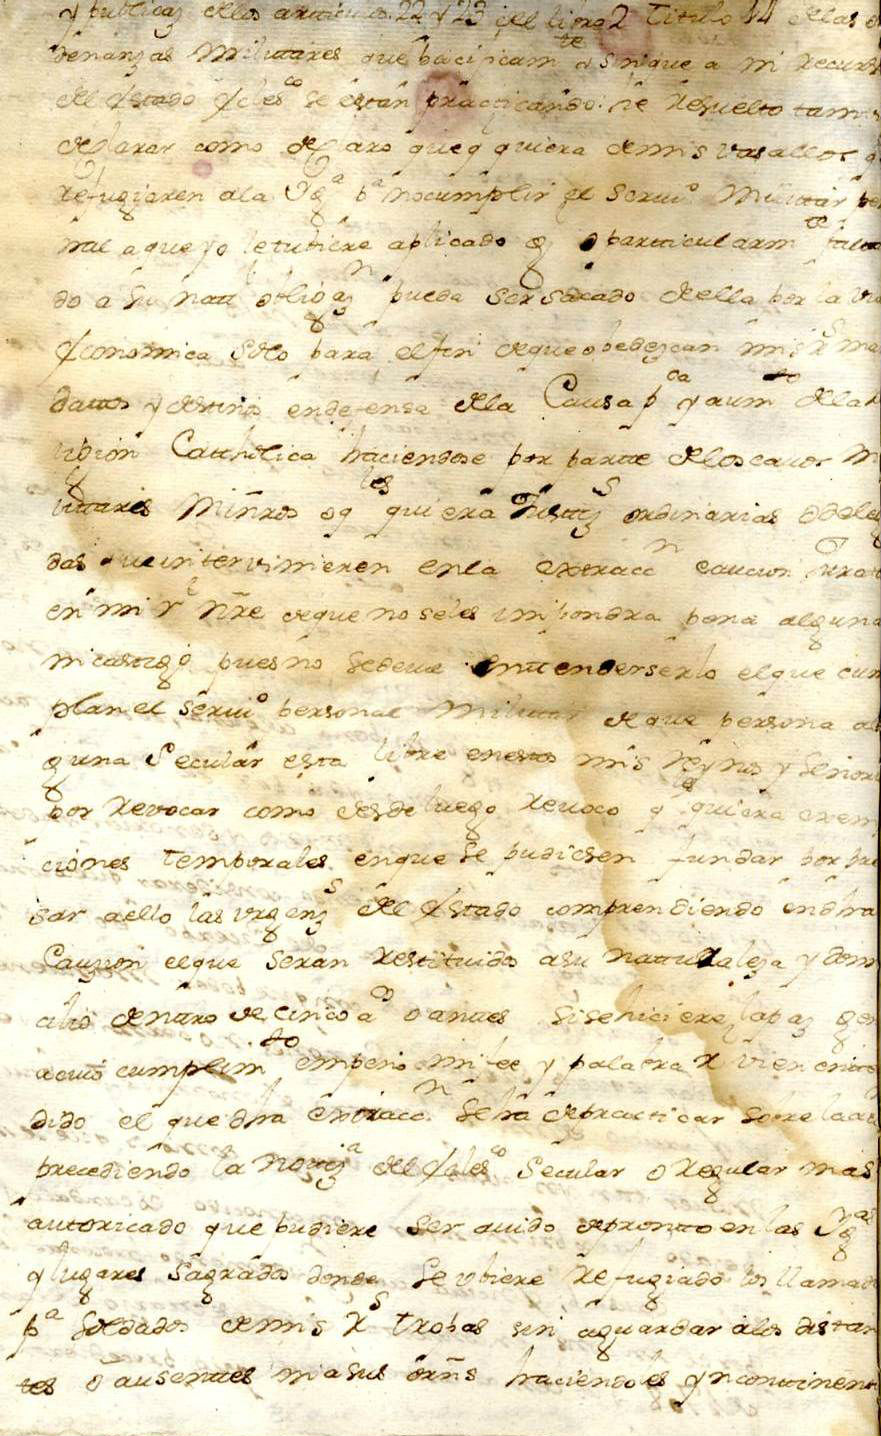 y publicaz dllos articulos 22 y 23 dll libro 2 Titulo 14 dllas
denanzas Militares que
dll estado Ecles.co se están practicando: he resuelto tam
declarar como declaro que qquiera de mis vasallos q
refugiaren ala Ygª pª no cumplir el serviº Militar per
nal a que yo le tubiere aplicado o particularm.te falta
do a su natt obligaz.n pueda ser sacado de ella por la vi
Economica solo para el fin de que obedezcan mis R.s ma
dattos y destinos en defensa dela Causa p.ca y aum.to dela R
ligion Catholica haciendose por partte delos cavos M
litares Miñros o q.les quiera Justtiz.s ordinarias o deleg
das que intervinieren en la extracc.n caucion jurat
en mi r.l nr̃e de que no seles impondra pena alguna
ni castigo pues no se deve enttenderse el que cum
plan el serviº personal Militar de que persona al
guna Secular esta libre en estos mis Reynos y señori
por revocar como desde luego revoco q.lesquiera exem
ciones temporales en que se pudiesen fundar por pre
isar a ello las urgenz.s dll Estado comprendiendo en dha
Cauzion el que seran restituidos a su natturaleza y domi
cilio dentro de cinco a.s o antes si se hiciere la paz gen
a cuio cumplim.to empeño mi fee y palabra R.l vien enten
dido el que dha extracc.n se ha de practicar sobre la
precediendo la notiz.a dll Ecles.co Secular o Regular mas
autoricado que pudiere ser avido de pronto en las Yg.as
y lugares sagrados donde se ubiere refugiado los llamad
pª soldados de mis R.s tropas sin aguardar alos distan
tes o ausentes ni a sus orñs haciendoles yncontinent